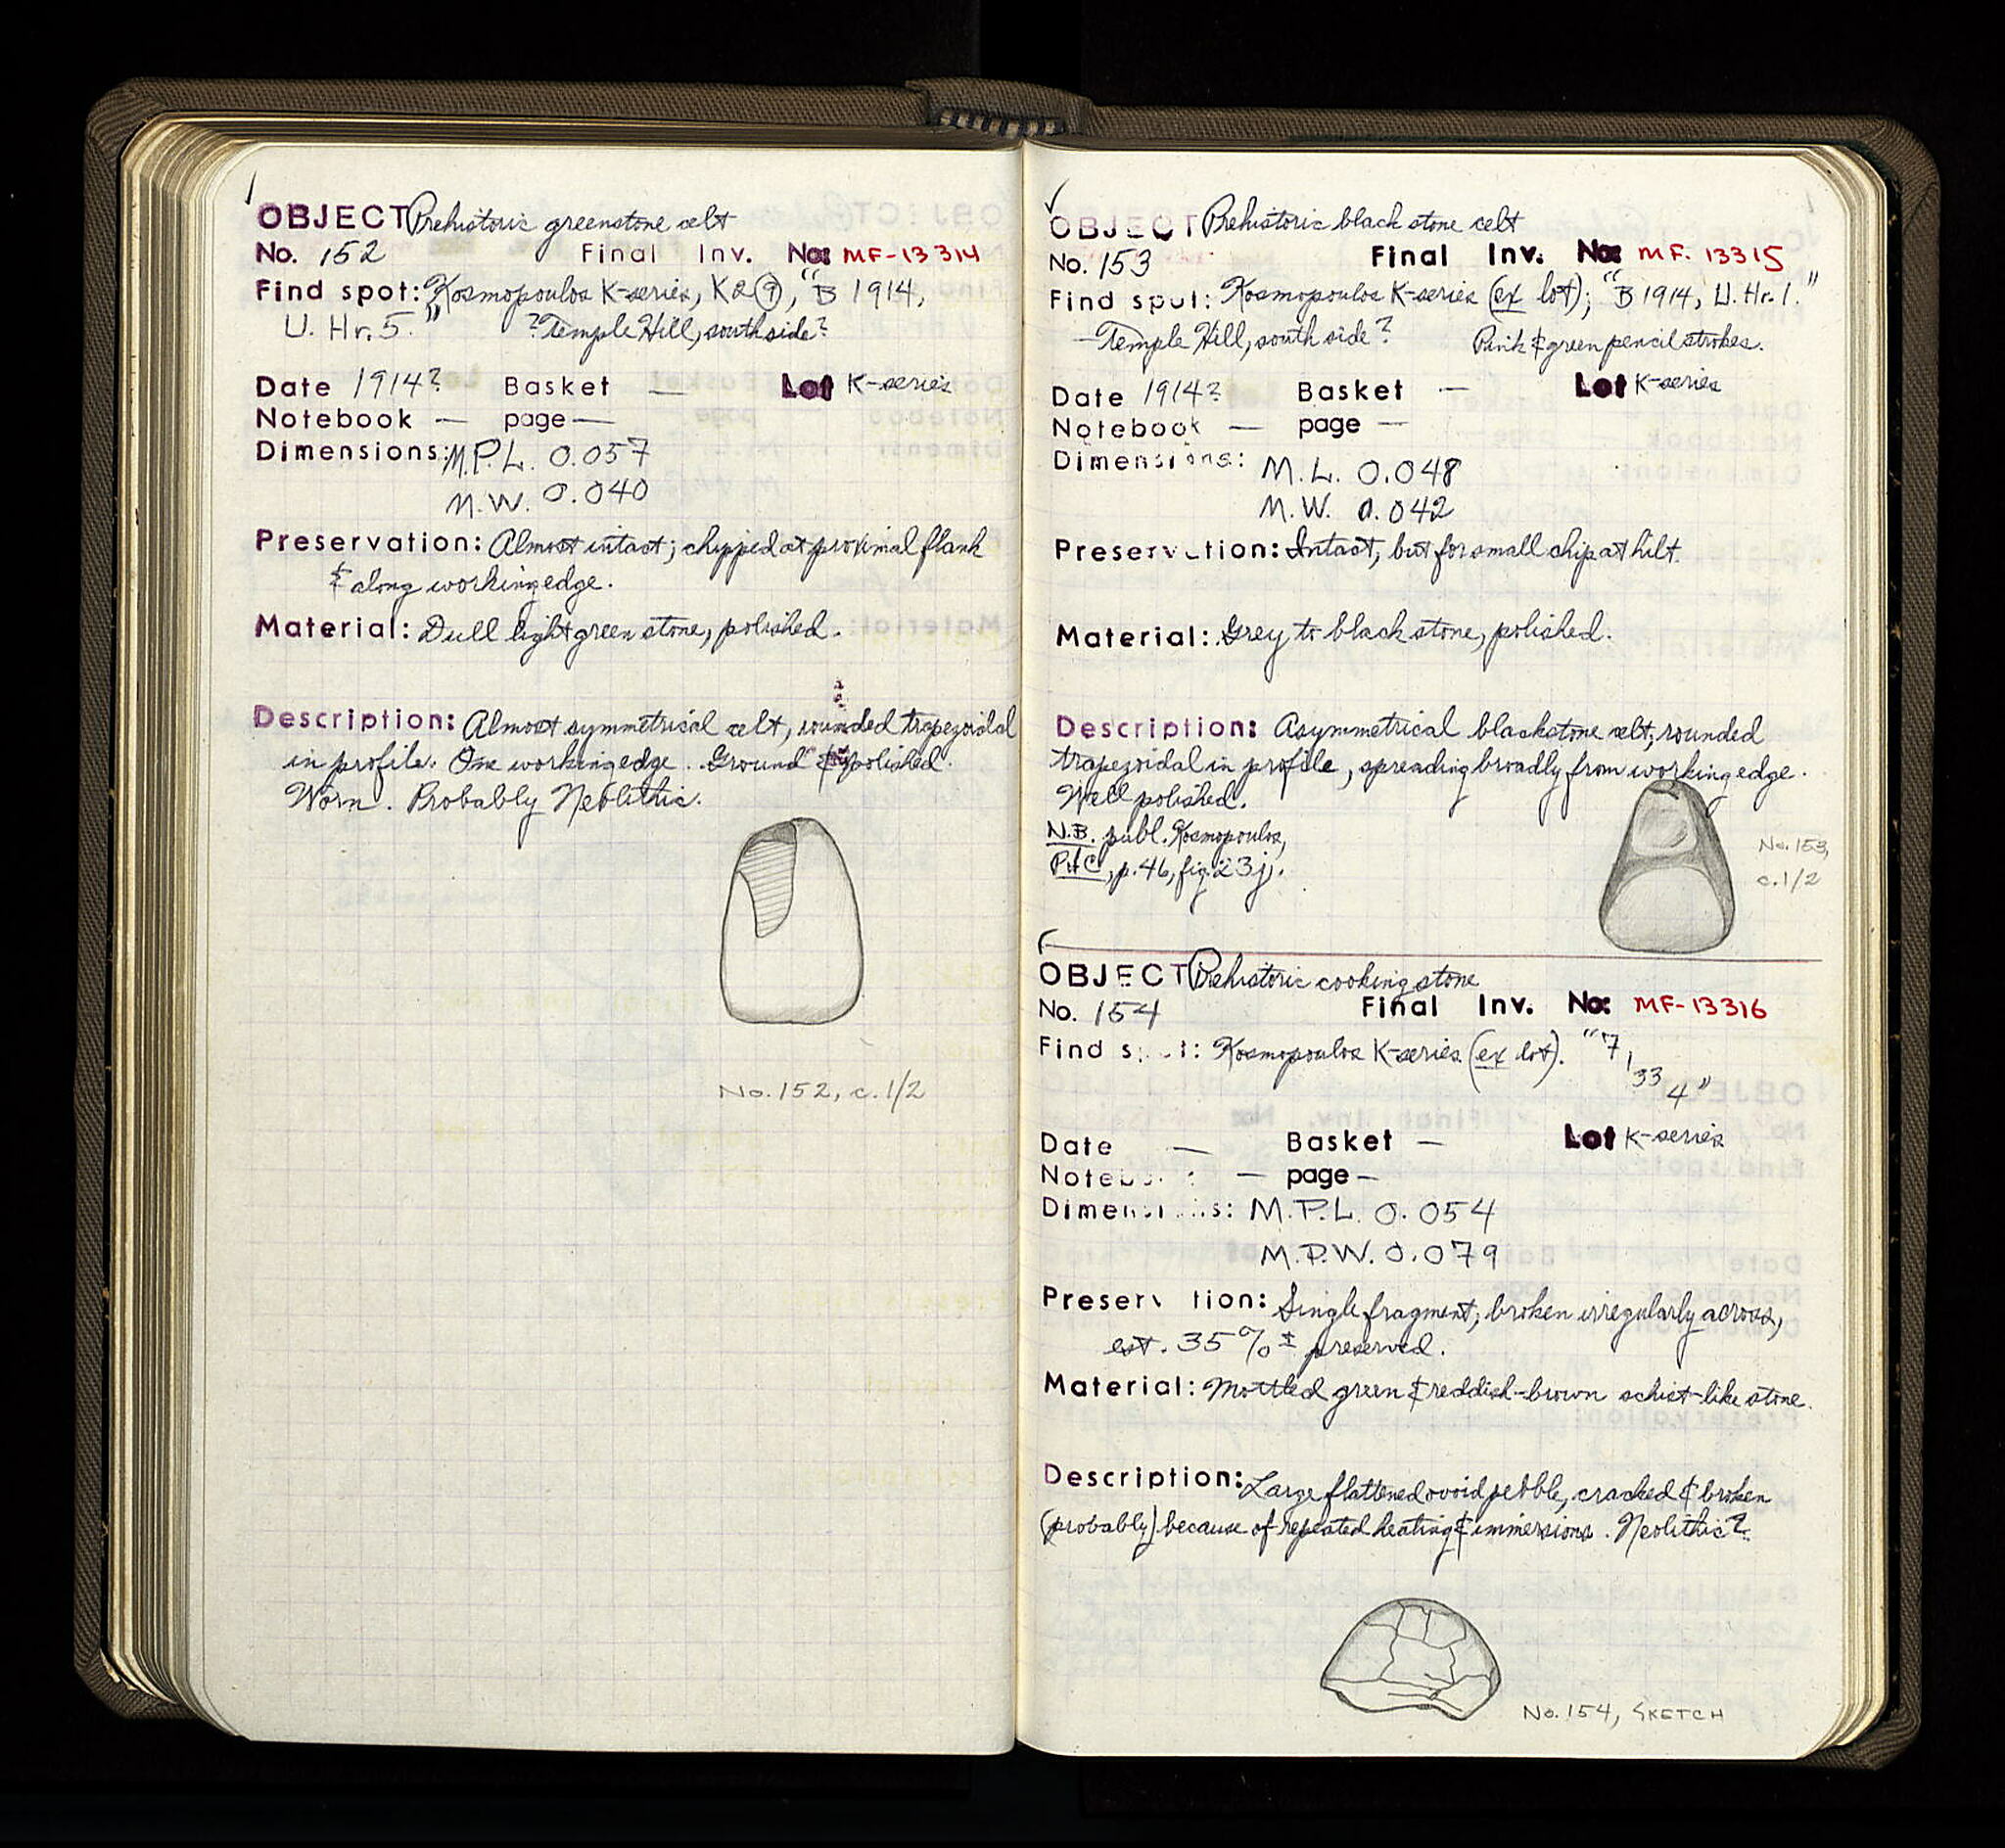 OBJECT Prehistoric greenstone celt
No. 152 Final Inv. No: MF-13314
Find spot: Kosmopoulos K-series, K2⑨, "B 1914,
U. Hr. 5." ?Temple Hill, south side?
Date 1914? Basket — Lot K-series
Notebook — page —
Dimensions: M.P.L. 0.057
M.W. 0.040
Preservation: Almost intact; chipped at proximal flank
& along working edge.
Material: Dull light green stone, polished.
Description: Almost symmetrical celt, rounded trapezoidal
in profile. One working edge. Ground & polished.
Worn. Probably Neolithic.
No. 152, c. 1/2
OBJECT Prehistoric black stone celt
No. 153 Final Inv. No: MF. 13315
Find spot: Kosmopoulos K-series (ex lot); "B 1914, U. Hr. 1."
—Temple Hill, south side? Pink & green pencil strokes.
Date 1914? Basket — Lot K-series
Notebook — page —
Dimensions: M.L. 0.048
M.W. 0.042
Preservation: Intact, but for small chip at hilt.
Material: Grey to black stone, polished.
Description: Asymmetrical blackstone celt, rounded
trapezoidal in profile, spreading broadly from working edge.
Well polished.
N.B. publ. Kosmopoulos,
PHC, p. 46, fig. 23j.
No. 153,
c. 1/2
OBJECT Prehistoric cooking stone
No. 154 Final Inv. No: MF-13316
Find spot: Kosmopoulos K-series (ex lot). "7,
33
4"
Date — Basket — Lot K-series
Notebook — page —
Dimensions: M.P.L. 0.054
M.P.W. 0.079
Preservation: Single fragment; broken irregularly across,
est. 35% ± preserved.
Material: Mottled green & reddish-brown schist-like stone.
Description: Large flattened ovoid pebble, cracked & broken
(probably) because of repeated heating & immersions. Neolithic?
No. 154, SKETCH